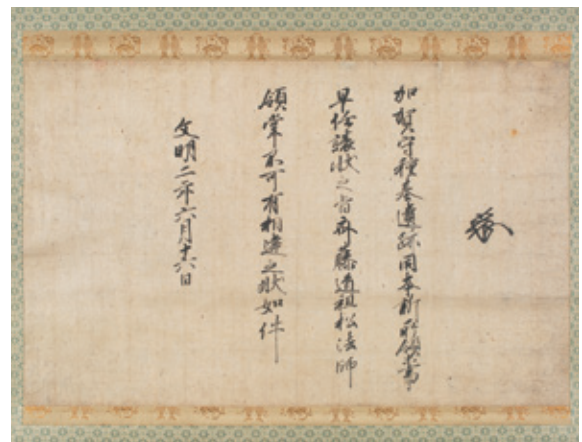 加賀守種基遺跡同本新所領等事
早任譲状之旨斉藤道祖松法師
領掌不可有相違之状如件
文明二年六月十六日